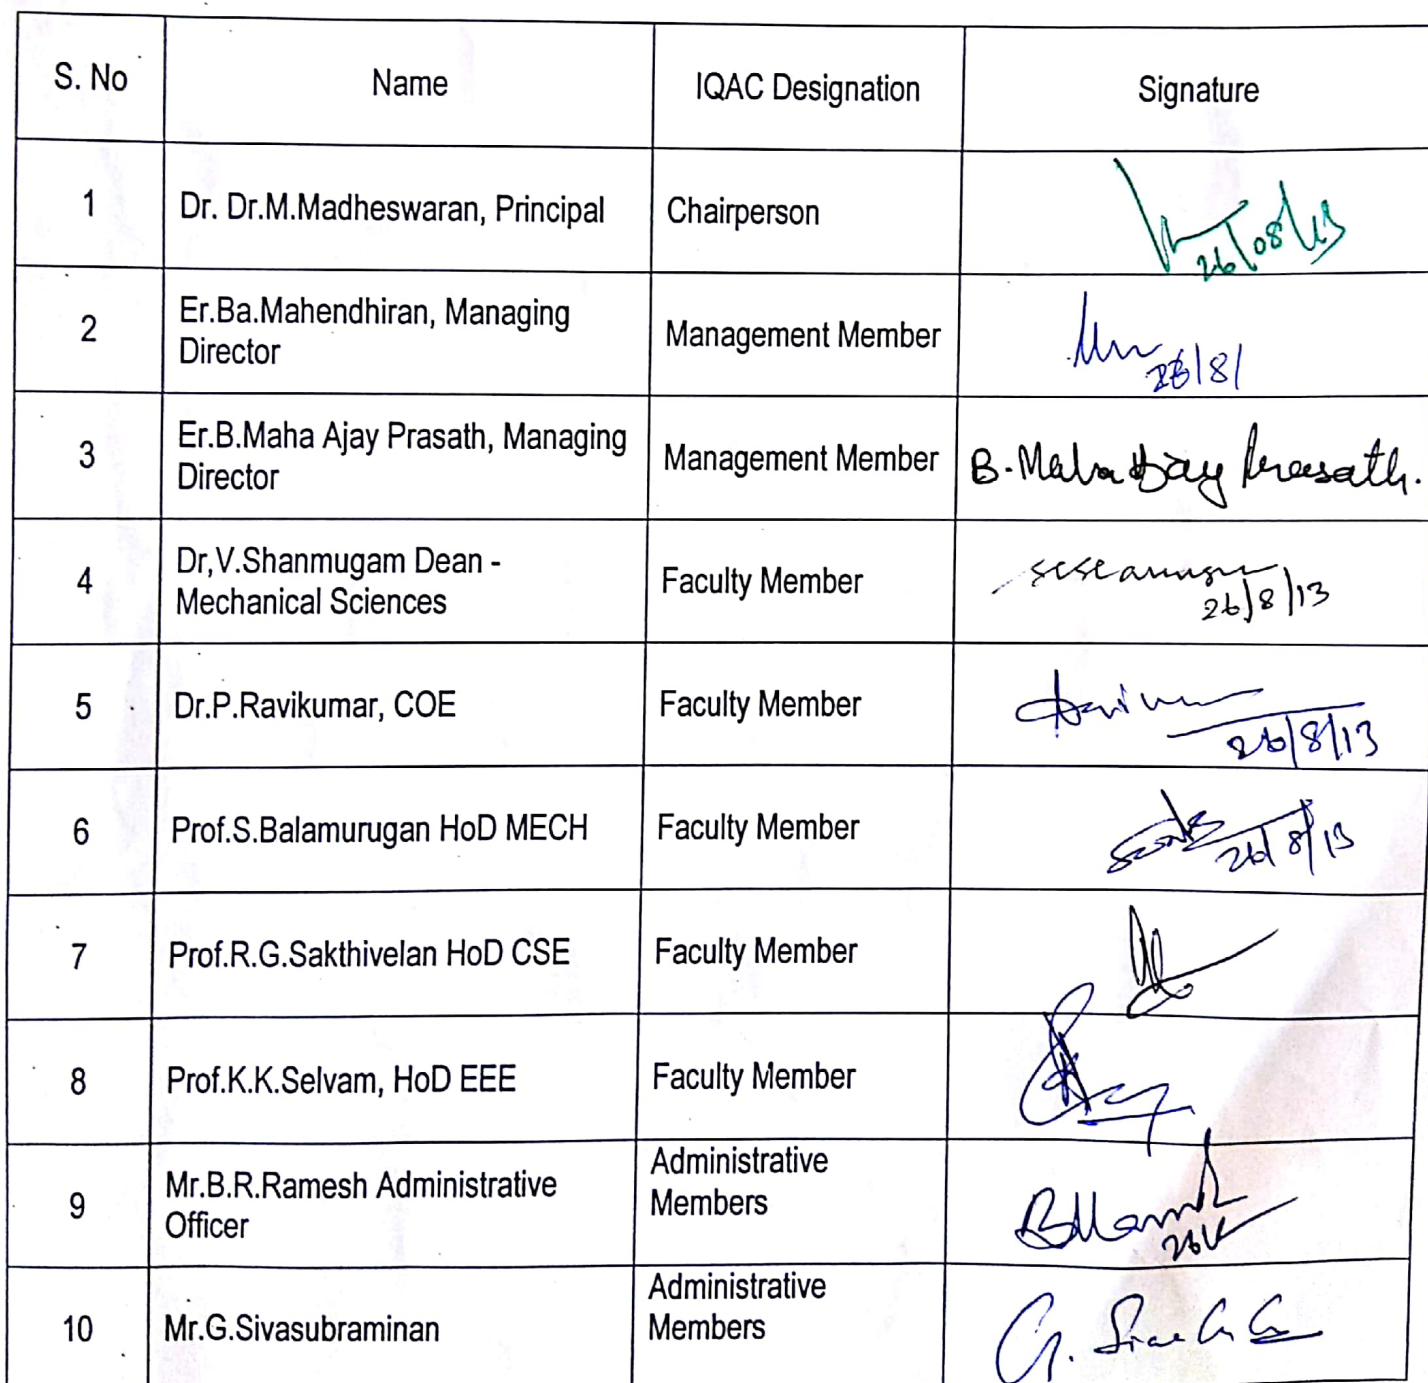 S. No Name IQAC Designation Signature
1 Dr. Dr.M.Madheswaran, Principal Chairperson
26/08/13
2 Er.Ba.Mahendhiran, Managing
Director Management Member
26/8/
3 Er.B.Maha Ajay Prasath, Managing
Director Management Member B. Maha Ajay Prasath.
4 Dr,V.Shanmugam Dean -
Mechanical Sciences Faculty Member
26/8/13
5 Dr.P.Ravikumar, COE Faculty Member
26/8/13
6 Prof.S.Balamurugan HoD MECH Faculty Member
26/8/13
7 Prof.R.G.Sakthivelan HoD CSE Faculty Member
8 Prof.K.K.Selvam, HoD EEE Faculty Member
9 Mr.B.R.Ramesh Administrative
Officer Administrative
Members
10 Mr.G.Sivasubraminan Administrative
Members G.